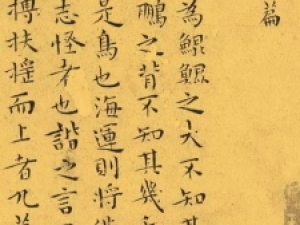 篇
為鯤鯤之大不知其
鵬之背不知其幾
是鳥也海運則將徙
志怪者也諧之言
摶扶摇而上者九萬